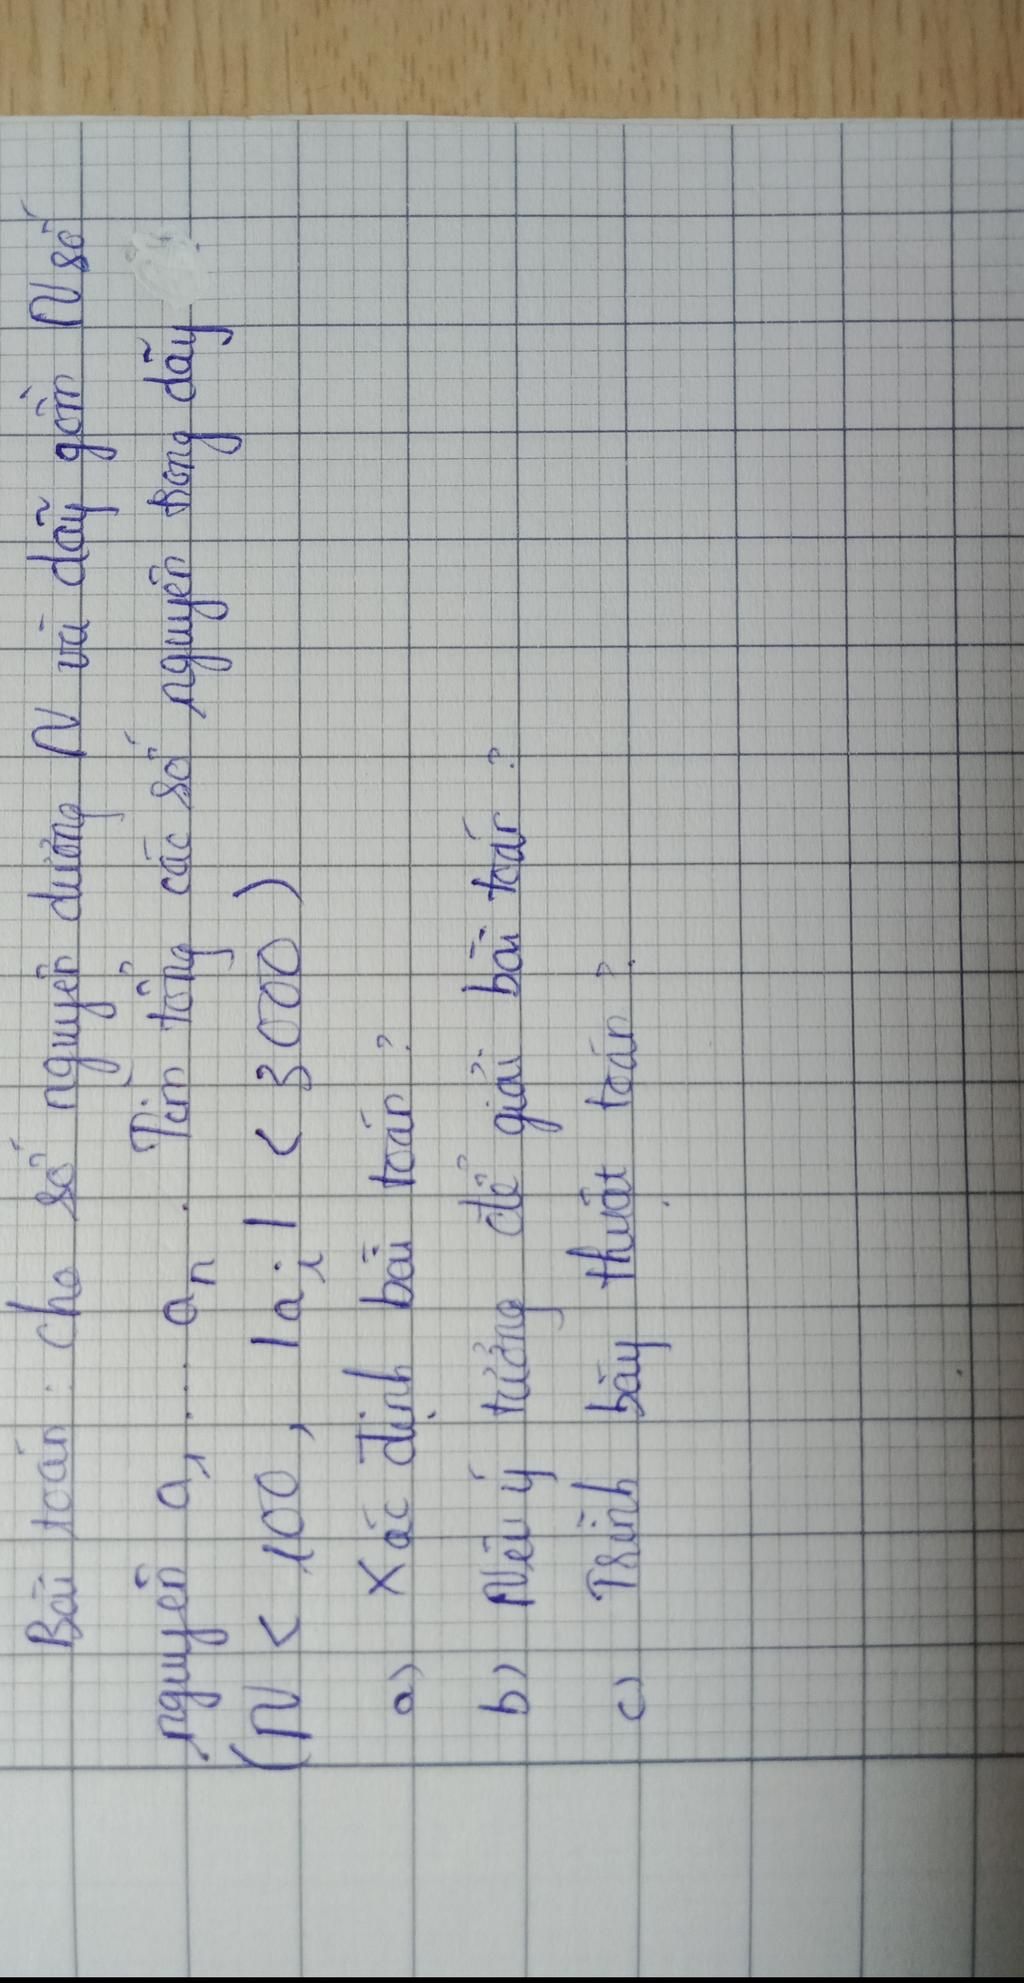 Bài toán: cho số nguyên dương N và dãy gồm N số
nguyên a, ... an. Tìm tổng các số nguyên trong dãy
(N < 100, |ai| < 3000)
a) Xác định bài toán?
b) Nêu ý tưởng để giải bài toán?
c) Trình bày thuật toán?